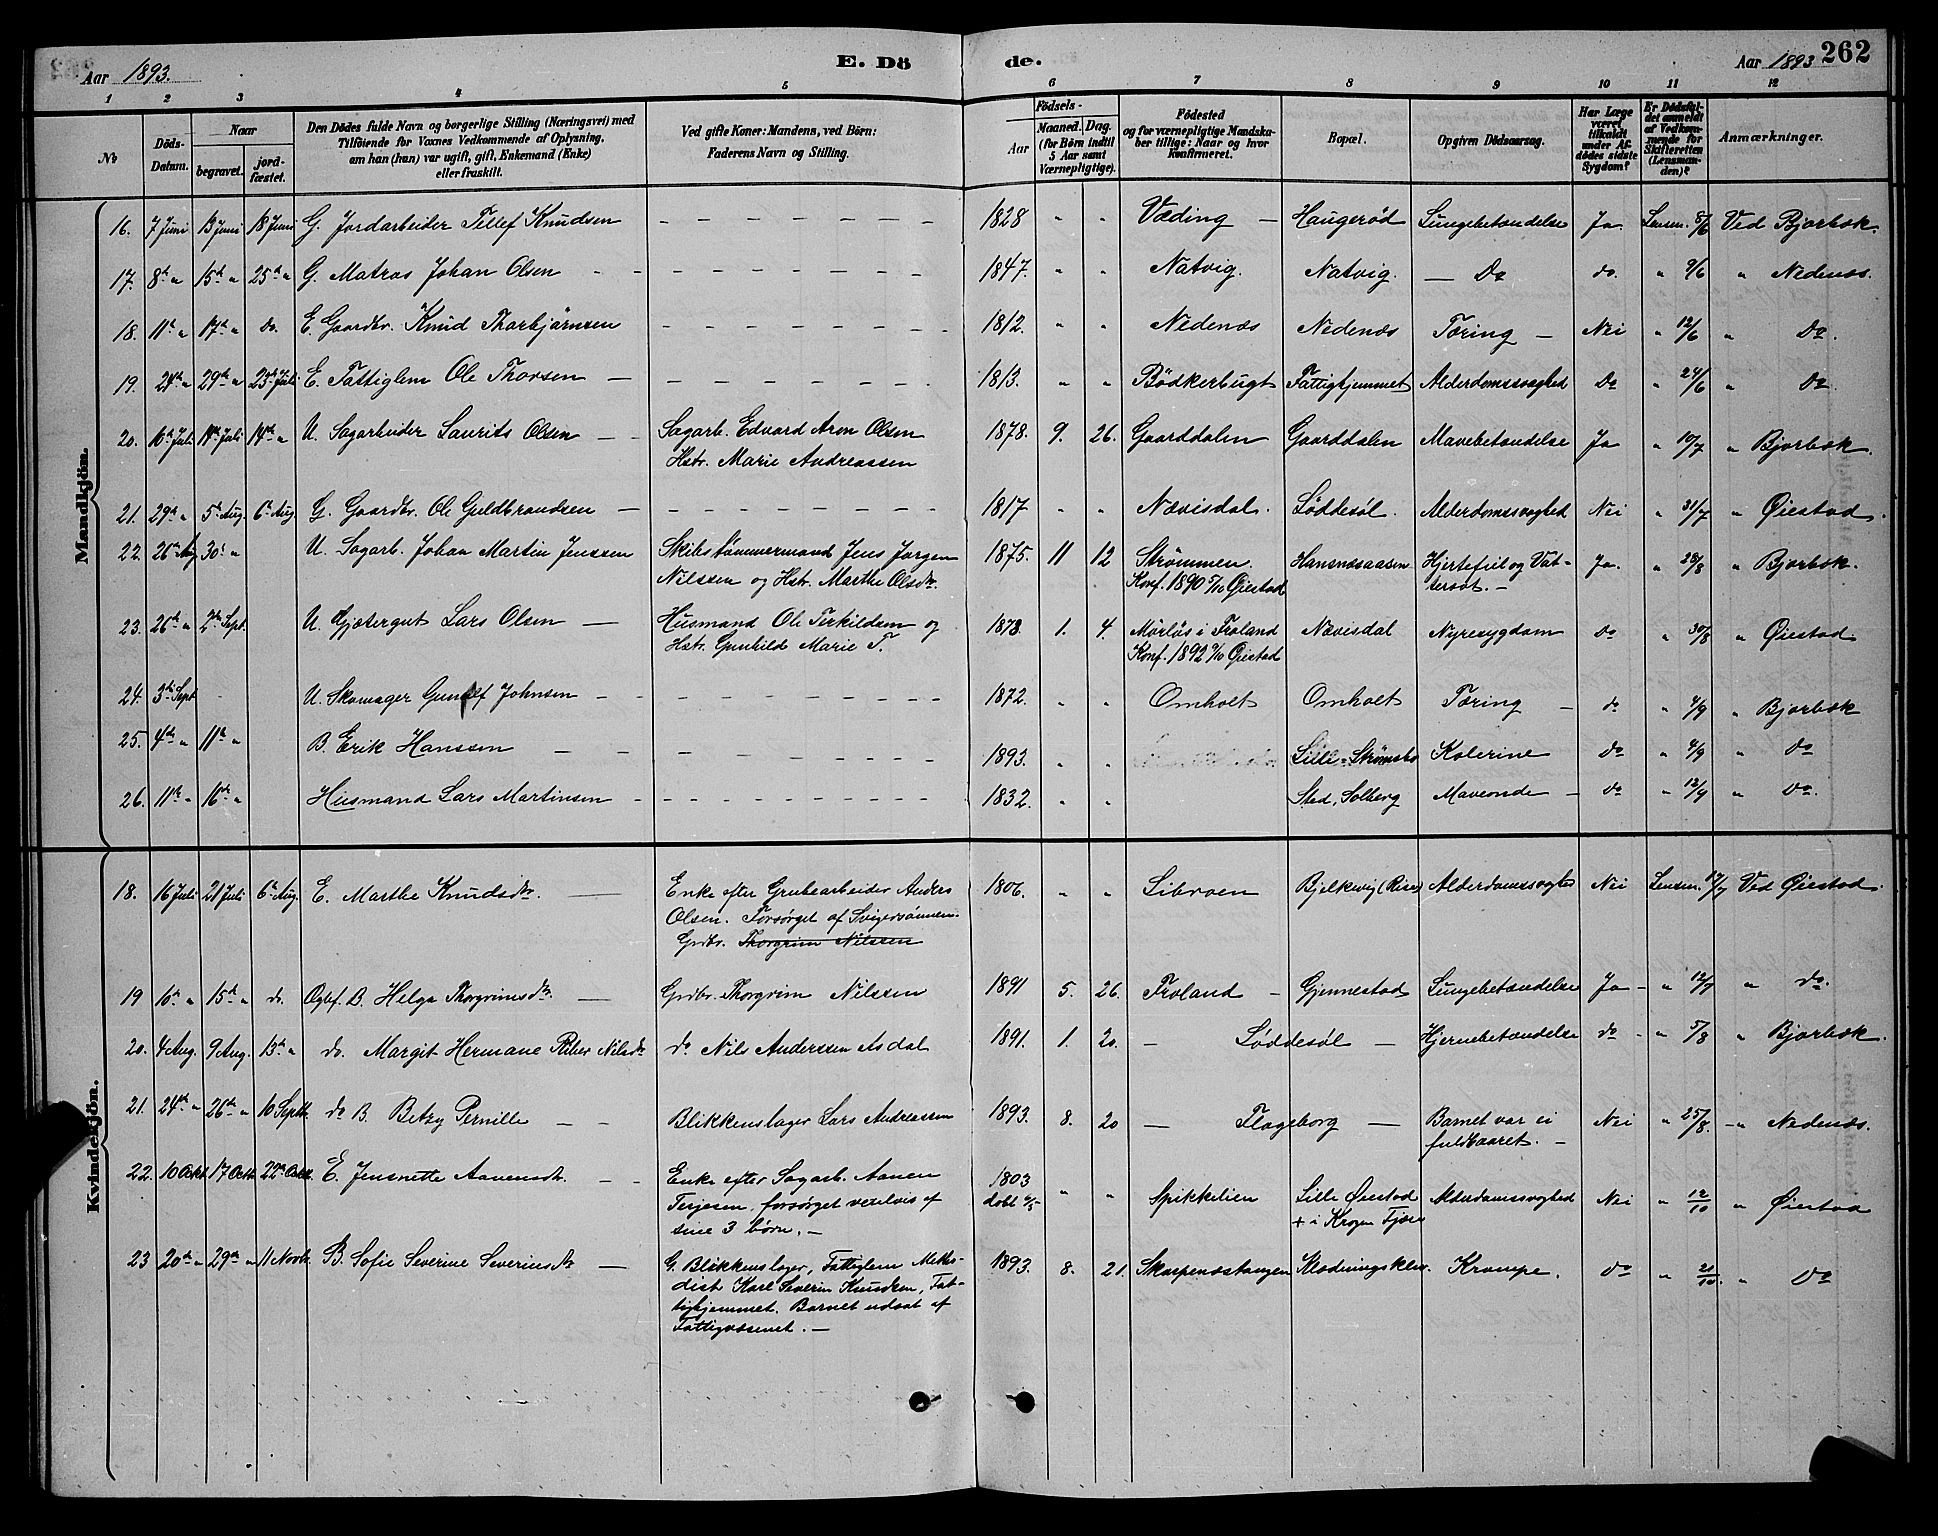 Aar 1893.
E. Döde.
Aar 1893 262
1 2 3 4 5 6 7 8 9 10 11 12
No
Döds-Datum.
Naar
begravet.
jord-fæstet.
Den Dödes fulde Navn og borgerlige Stilling (Næringsvei) med
Tilföiende for Voxnes Vedkommende af Oplysning,
om han (hun) var ugift, gift, Enkemand (Enke)
eller fraskilt.
Ved gifte Koner: Mandens, ved Börn:
Faderens Navn og Stilling.
Födsels-
Aar
Maaned. Dag.
(for Börn indtil
5 Aar samt
Værnepligtige).
Födested
og for værnepligtige Mandska-
ber tillige: Naar og hvor
konfirmeret.
Bopæl.
Opgiven Dödsaarsag.
Har Læge
været
tilkaldt
under Af-
dödes sidste
Sygdom?
Er Dödsfal-
det anmeldt
af Vedkom-
mende for
Skifteretten
(Lensman-
den)?
Anmærkninger.
Mandkjön.
16. 7 Juni 13 Juni 18 Juni G. Jordarbeider Tellef Knudsen - - - - - - - 1828 " " Væding - Haugerød Lungebetændelse Ja Lensm. 8/6 Ved Bjorbæk.
17. 8de " 15de " 25de " G. Matros Johan Olsen - - - - - - - 1847. " " Natvig. Natvig. - Do do. " 9/6 " Nedenæs.
18. 11te " 17de " do. E. Gaardbr. Knud Thorbjørnsen - - - - - - - 1812. " " Nedenæs Nedenæs Tæring - Nei " 12/6 " Do.
19. 24de " 29de " 23de Juli E. Fattiglem Ole Thorsen - - - - - - - 1813. " " Bødkerbugt Fattighjemmet Alderdomssvaghed Do " 24/6 " Do.
20. 10de Juli 14de Juli 14de " U. Sagarbeider Laurits Olsen - Sagarb. Edvard Aron Olsen 1878. 9. 26. Gaarddalen Gaarddalen Mavebetændelse Ja " 10/7 " Bjorbæk.
Hstr. Marie Andreassen
21. 29de " 5te Aug. 6te Aug. G. Gaardbr. Ole Guldbrandsen - - - - - - - 1817 " " Nævisdal. Løddesøl. Alderdomssvaghed Nei " 31/7 " Øiestad.
22. 26de Aug 30te " U. Sagarb. Johan Martin Jenssen Skibstømmermand Jens Jørgen 1875. 11 12 Strømmen. Hansnesaasen Hjertefeil og Vat- Ja. " 28/8 " Bjorbæk.
Nilssen og Hstr. Marthe Olsdr. Konf. 1890 5/10 Øiestad tersot. -
23. 26de " 2den Sept. U. Gjætergut Lars Olsen - Husmand Ole Terkildsen og 1878. 1. 4. Mørløs i Froland Nævisdal Nyresygdom do " 30/8 " Øiestad
Hstr. Gunhild Marie T. Konf. 1892 2/10 Øiestad
24. 3die Sept U. Skomager Gunulf Johnsen - - - - - - - 1872. " " Omholt Omholt Tæring - do " 4/9 " Bjorbæk
25. 4de " 11te " B. Erik Hanssen - - - - - - - 1893. " " Lille-Strømsbo Kolerine do " 4/9 " do
26. 11te " 16de " Husmand Lars Martinsen - - - - - - - 1832. " " Sted, Solberg Maveonde - do " 12/9 " do.
Kvindekjön.
18. 16 Juli 21 Juli 6te Aug. E. Marthe Knudsdr. - Enke efter Grubearbeider Anders 1806. " " Libroen Bjelkevig (Rise) Alderdomssvaghed Nei Lensm. 17/7 Ved Øiestad.
Olsen. Forsørget af Svigersønnen
Grdbr. Thorgrim Nilssen
19 10de " 15de " do. Ogbf. B. Helga Thorgrimsdr. - Grdbr. Thorgrim Nilssen 1891 5. 26. Froland - Gjennestad Lungebetændelse Ja - " 12/7 " do.
20. 4 Aug. 9 Aug. 13de " do. Margit Hermane Nilsdr do Nils Anderssen Asdal 1891. 1. 20. - Løddesøl - Hjernebetændelse do - " 5/8 " Bjorbæk.
21. 24de " 26de " 10 Septb. do B. Betzy Pernille - - Blikkenslager Lars Andreassen 1893. 8. 20 - Flageborg - Barnet var ei Nei " 25/8. - " Nedenæs.
fuldbaaret. -
22. 10 Octb. 17 Octb. 22de Octb. E. Jensnette Aanensdr. - - Enke efter Sagarb. Aanen 1803 " " Spikkelien Lille Øiestad Alderdomssvaghed Nei " 12/10 " Øiestad
Terjesen, forsørget vexelvis af døbt 4/5 + i Krogen Fjære
sine 3 børn. -
23 20de " 29de " 11 Novb. B. Sofie Severine Severinsdr - G. Blikkenslager, Fattiglem Metho- 1893. 8. 21. Skarpenæstangen Klodningsklev. Krampe. do " 21/10. " Do
dist Karl Severin Knudsen, Fat-
tighjemmet. Barnet udsat af
Fattigvæsenet. -